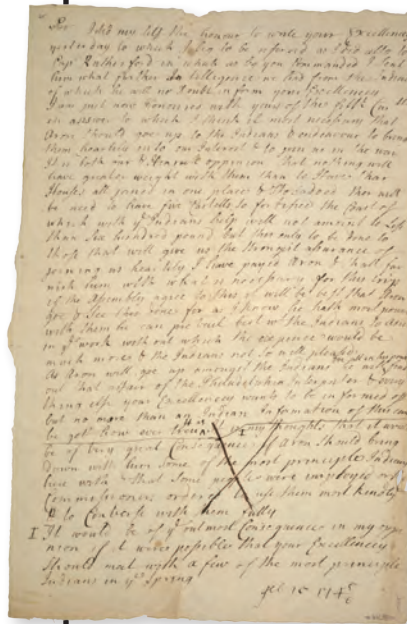 Sir I did my self the honour to write your Excellency
yesterday to which I beg to be referred as I did also to
Capt Rutherford in what as be you commanded I Sent
him what further Intelligence we had from the Indians
of which he will no doubt inform your Excellency
I am just now honoured with yours of the first
in answer to which I think it most necessary that
Aron Should goe up to the Indians & endeavour to bring
them heartily into our Interest & to joyn us in the war
It is both our & oppinion that nothing will
have greater weight with them than to Have thar
Houses all joined in one place & Stockadoed ther will
be need to have five Castells so fortefied the Cost of
which with ye Indians help will not amount to Less
than Six hundred pound but this only to be done to
those that will give us the Strongest assurance of
joining us heartily I have payed Aron & shall fur
nish him with what is necessary for this trip
if the Assembly agree to this it will be best that Aron
goe & See this done for as I know he hath most power
with them he can prevail best with the Indians to assist
in ye work with out which the expence would be
much more & the Indians not so well pleased
As Aron will goe up amongst the Indians he
out that affair of the Philadelphia Interpreter & every
thing else your Excellency wants to be informed off
but no more than an Indian Information of this can
be got how ever my thoughts that it would
be of very great Consequence if Aron Should bring
Down with him Some of the most principle Indians
here with that Some people were imployed or
Commissioners ordered to use them most kindly
& to Converse with them fully
I It would be of ye outmost Consequence in my opp
nion if it were possible that your Excellency
Should meet with a few of the most principle
Indians in ye Spring